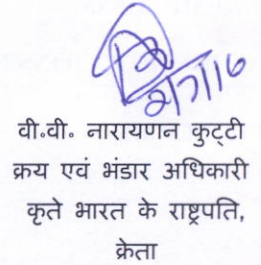 2/7/16
वी.वी. नारायणन कुट्टी
क्रय एवं भंडार अधिकारी
कृते भारत के राष्ट्रपति,
क्रेता